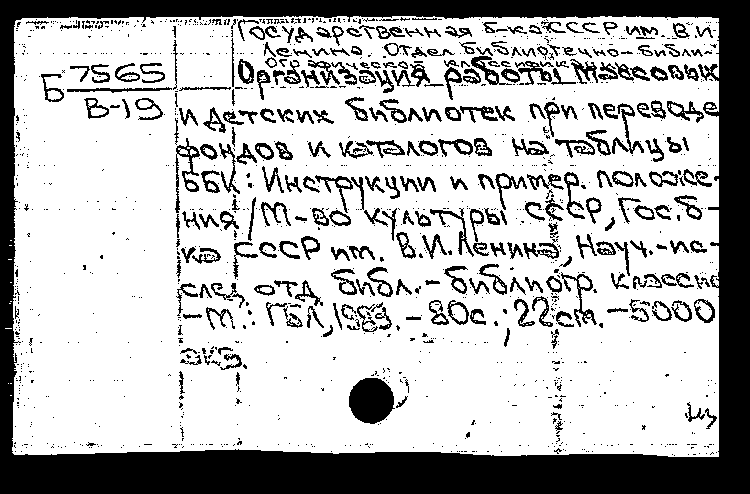 Государственная б-ка СССР им. В.И.
Ленина. Отдел библиотечно-библи-
ографической классификации
Б 7565
В-19
Организация работы массовых
и детских библиотек при переводе
фондов и каталогов на таблицы
ББК: Инструкции и пример. положе-
ния / М-во культуры СССР, Гос. б-
ка СССР им. В.И. Ленина, Науч.-ис-
след. отд. библ.-библиогр. классиф.
- М.: ГБЛ, 1989. - 80с.; 22см. - 5000
экз.